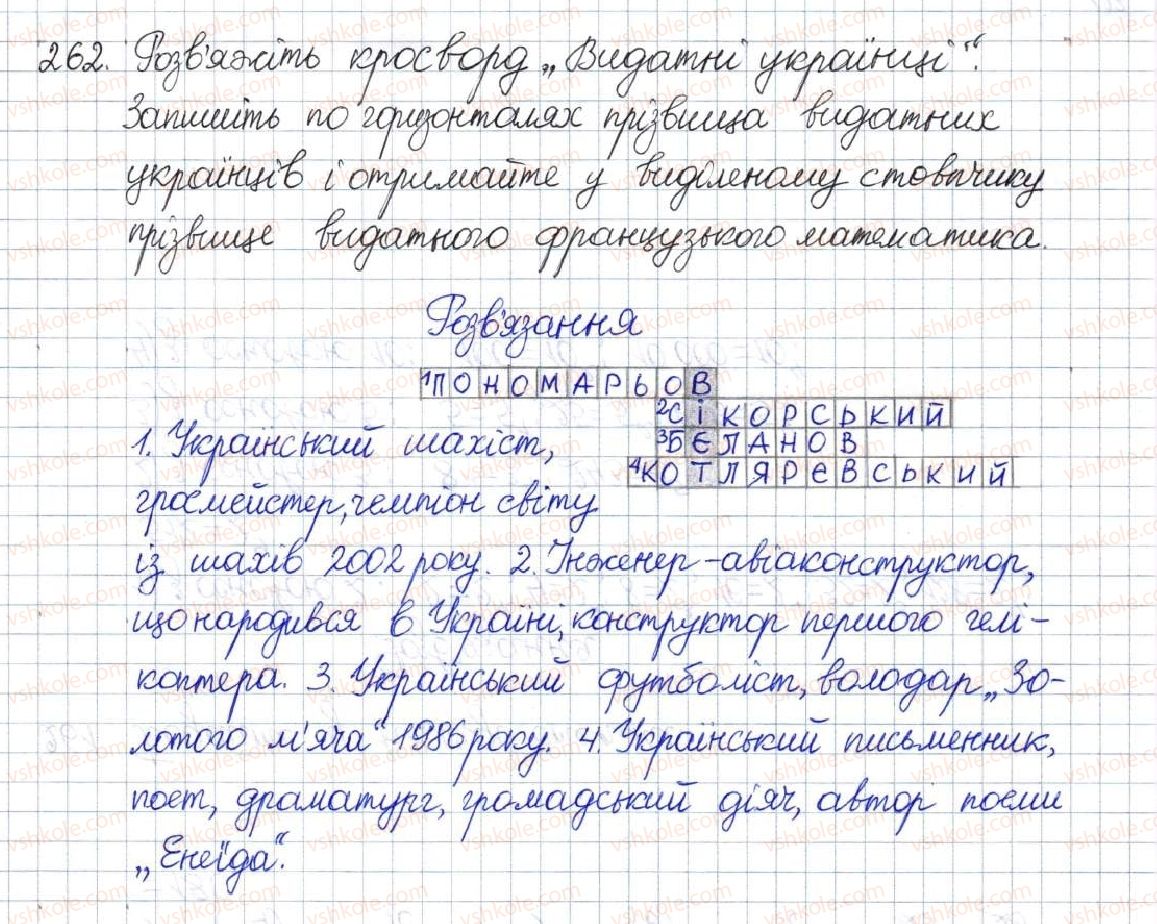 262. Розв'яжіть кросворд „Видатні українці“.
Запишіть по горизонталях прізвища видатних
українців і отримайте у виділеному стовпчику
прізвище видатного французького математика.
Розв'язання
1ПОНОМАРЬОВ
2СІКОРСЬКИЙ
1. Український шахіст,
3БЄЛАНОВ
4КОТЛЯРЕВСЬКИЙ
гросмейстер, чемпіон світу
із шахів 2002 року. 2. Інженер-авіаконструктор,
що народився в Україні, конструктор першого гелі-
коптера. 3. Український футболіст, володар „Зо-
лотого м'яча“ 1986 року. 4. Український письменник,
поет, драматург, громадський діяч, автор поеми
„Енеїда“.